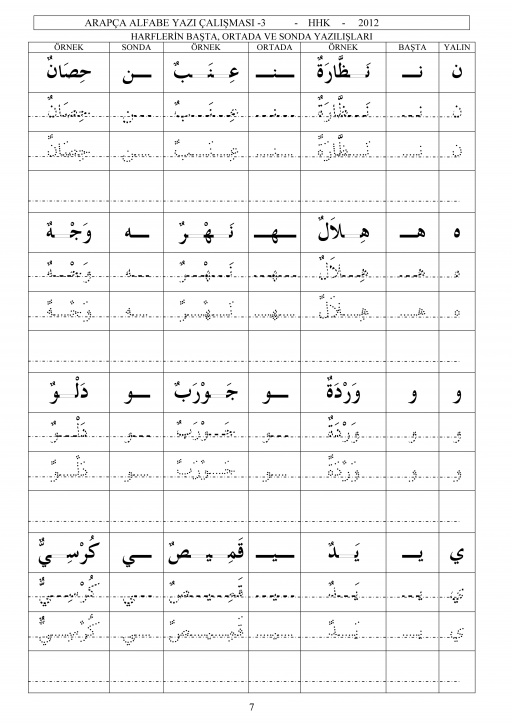 ARAPÇA ALFABE YAZI ÇALIŞMASI -3 - HHK - 2012
HARFLERİN BAŞTA, ORTADA VE SONDA YAZILIŞLARI
ÖRNEK SONDA ÖRNEK ORTADA ÖRNEK BAŞTA YALIN
ن نـ نَـظَّارَةٌ ـنـ عِـنَـبٌ ـن حِصَانٌ
ن نـ نَـظَّارَةٌ ـنـ عِـنَـبٌ ـن حِصَانٌ
ن نـ نَـظَّارَةٌ ـنـ عِـنَـبٌ ـن حِصَانٌ
ه هـ هِـلاَلٌ ـهـ نَـهْـرٌ ـه وَجْـهٌ
ه هـ هِـلاَلٌ ـهـ نَـهْـرٌ ـه وَجْـهٌ
ه هـ هِـلاَلٌ ـهـ نَـهْـرٌ ـه وَجْـهٌ
و و وَرْدَةٌ ـو جَـوْرَبٌ ـو دَلْـوٌ
و و وَرْدَةٌ ـو جَـوْرَبٌ ـو دَلْـوٌ
و و وَرْدَةٌ ـو جَـوْرَبٌ ـو دَلْـوٌ
ي يـ يَـدٌ ـيـ قَمِـيـصٌ ـي كُرْسِـيٌّ
ي يـ يَـدٌ ـيـ قَمِـيـصٌ ـي كُرْسِـيٌّ
ي يـ يَـدٌ ـيـ قَمِـيـصٌ ـي كُرْسِـيٌّ
7